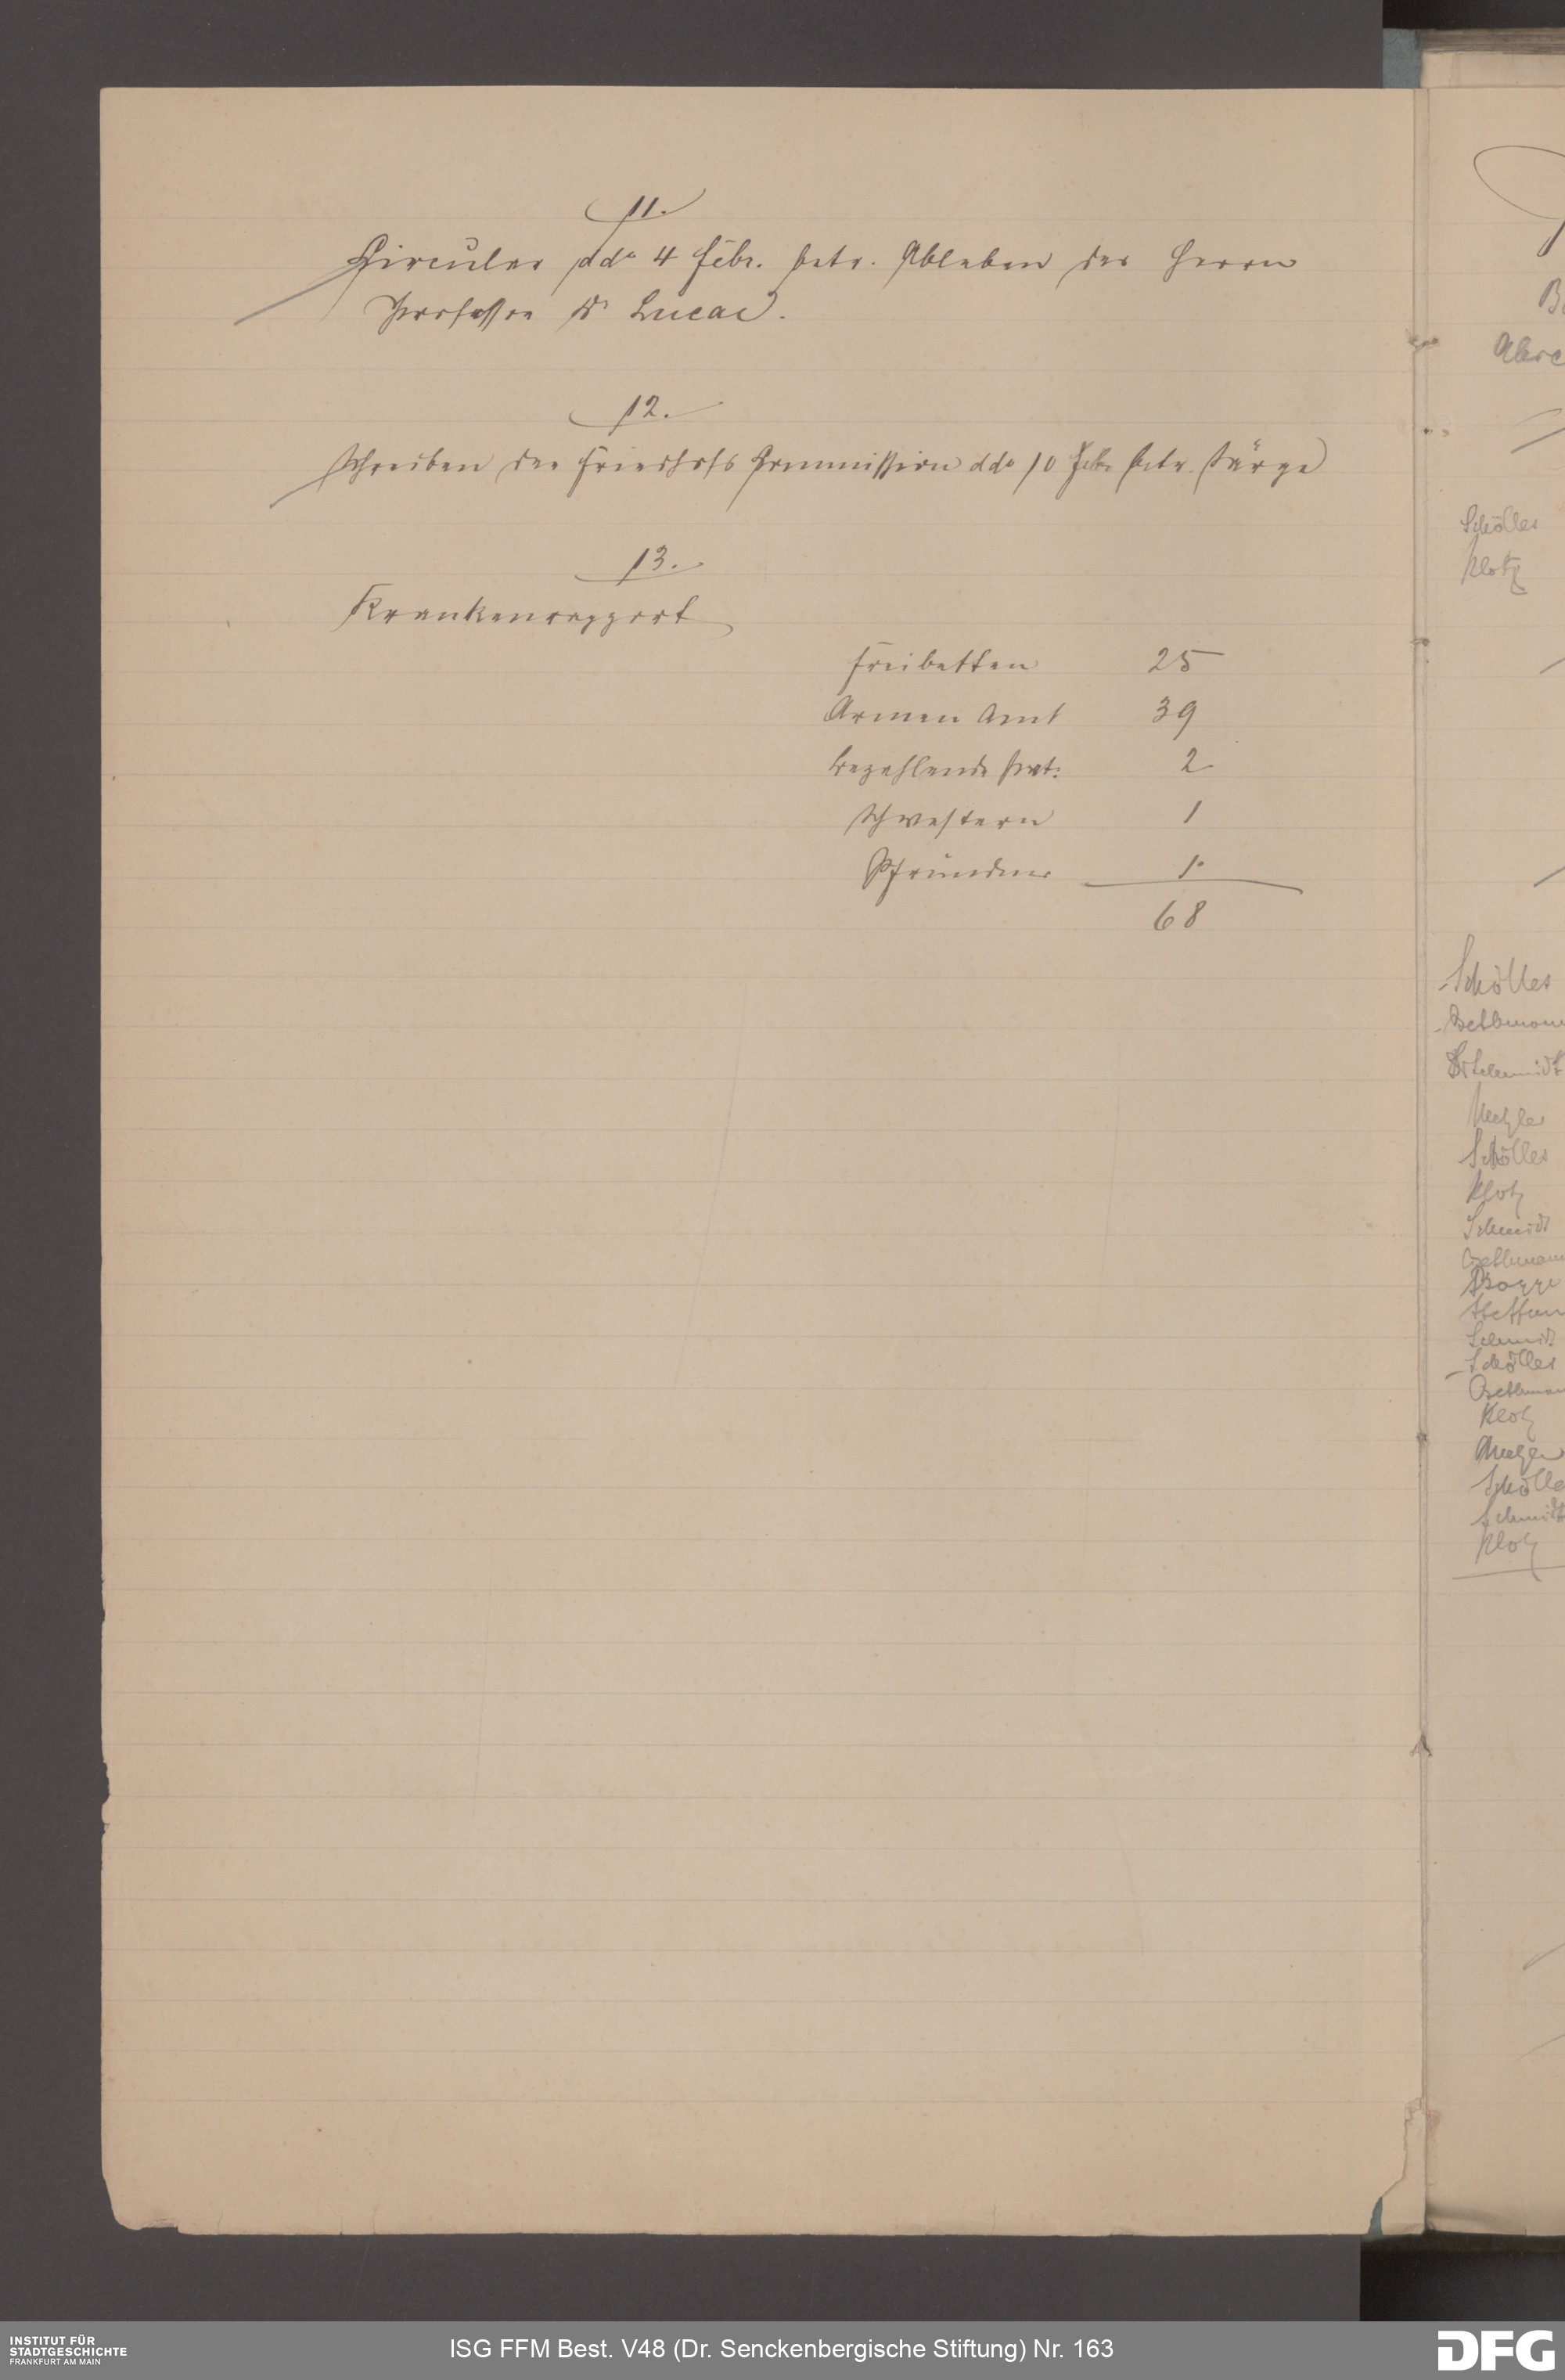 11.
Circular ddo 4 Febr. betr. Ableben des Herrn
Professor Dr Lucae.
12.
Schreiben der Friedhofs Commission ddo 10 Febr betr. Särge
13.
Krankenrapport
Freibetten 25
Armen Amt 39
bezahlende Pat: 2
Schwestern 1
Pfründner 1.
68
Schölles
Klotz
Schölles
Schmidt
Schölles
Klotz
Schmidt
Schmidt
Schölles
Klotz
Schölle
Schmidt
Klotz
INSTITUT FÜR
STADTGESCHICHTE
FRANKFURT AM MAIN
ISG FFM Best. V48 (Dr. Senckenbergische Stiftung) Nr. 163
DFG